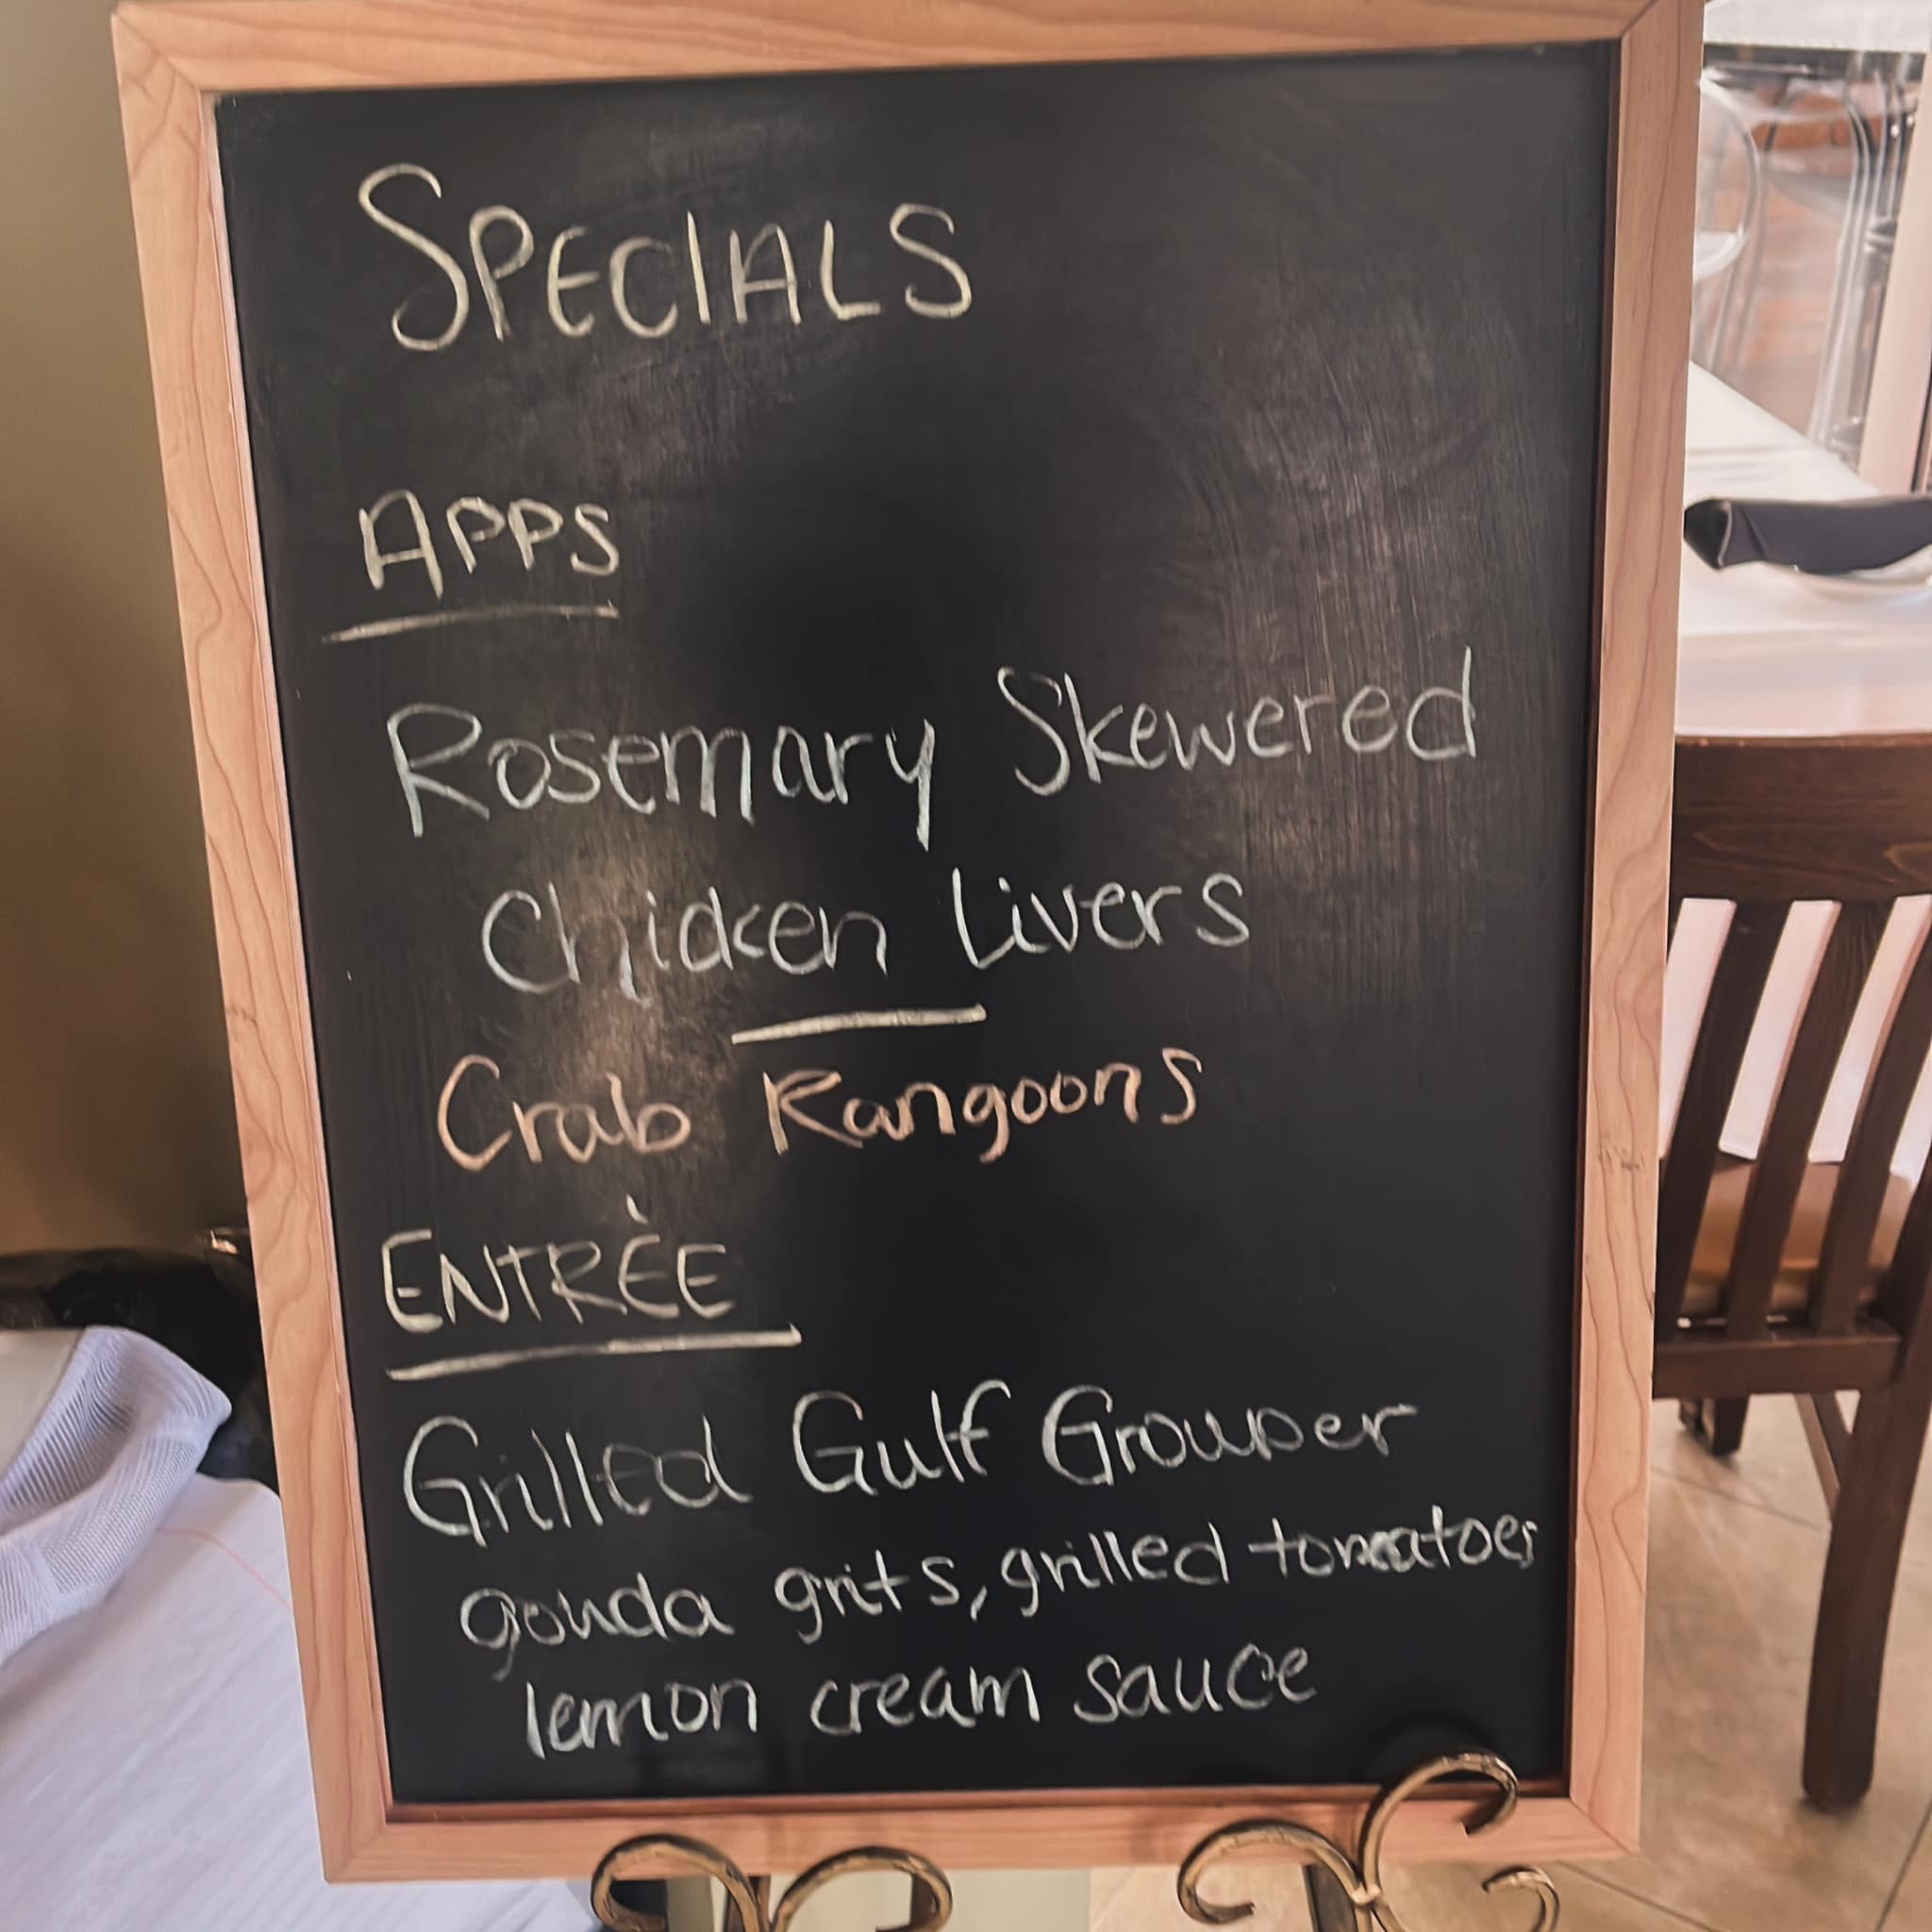 SPECIALS
APPS
Rosemary Skewered
Chicken Livers
Crab Rangoons
ENTRÈE
Grilled Gulf Grouper
gouda grits, grilled tomatoes
lemon cream sauce